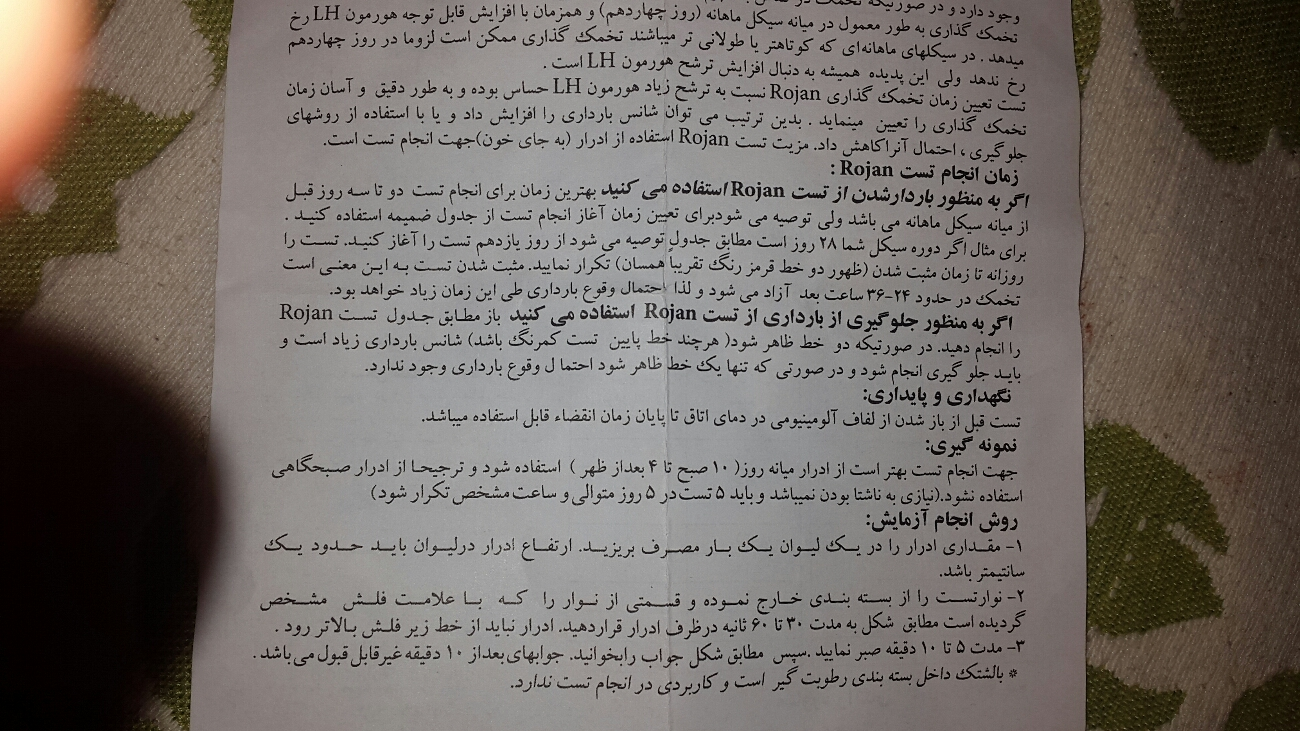 وجود دارد و در صورتیکه تخمک در
تخمک گذاری به طور معمول در میانه سیکل ماهانه (روز چهاردهم) و همزمان با افزایش قابل توجه هورمون LH رخ
میدهد . در سیکلهای ماهانه‌ای که کوتاهتر یا طولانی تر میباشند تخمک گذاری ممکن است لزوما در روز چهاردهم
رخ ندهد ولی این پدیده همیشه به دنبال افزایش ترشح هورمون LH است .
تست تعیین زمان تخمک گذاری Rojan نسبت به ترشح زیاد هورمون LH حساس بوده و به طور دقیق و آسان زمان
تخمک گذاری را تعیین مینماید . بدین ترتیب می توان شانس بارداری را افزایش داد و یا با استفاده از روشهای
جلوگیری ، احتمال آنراکاهش داد. مزیت تست Rojan استفاده از ادرار (به جای خون)جهت انجام تست است.
زمان انجام تست Rojan :
اگر به منظور باردارشدن از تست Rojan استفاده می کنید بهترین زمان برای انجام تست دو تا سه روز قبل
از میانه سیکل ماهانه می باشد ولی توصیه می شودبرای تعیین زمان آغاز انجام تست از جدول ضمیمه استفاده کنید .
برای مثال اگر دوره سیکل شما ۲۸ روز است مطابق جدول توصیه می شود از روز یازدهم تست را آغاز کنید. تست را
روزانه تا زمان مثبت شدن (ظهور دو خط قرمز رنگ تقریباً همسان) تکرار نمایید. مثبت شدن تست به این معنی است
تخمک در حدود ۲۴-۳۶ ساعت بعد آزاد می شود و لذا احتمال وقوع بارداری طی این زمان زیاد خواهد بود.
اگر به منظور جلوگیری از بارداری از تست Rojan استفاده می کنید باز مطابق جدول تست Rojan
را انجام دهید. در صورتیکه دو خط ظاهر شود( هرچند خط پایین تست کمرنگ باشد) شانس بارداری زیاد است و
باید جلو گیری انجام شود و در صورتی که تنها یک خط ظاهر شود احتما ل وقوع بارداری وجود ندارد.
نگهداری و پایداری:
تست قبل از باز شدن از لفاف آلومینیومی در دمای اتاق تا پایان زمان انقضاء قابل استفاده میباشد.
نمونه گیری:
جهت انجام تست بهتر است از ادرار میانه روز( ۱۰ صبح تا ۴ بعداز ظهر ) استفاده شود و ترجیحا از ادرار صبحگاهی
استفاده نشود.(نیازی به ناشتا بودن نمیباشد و باید ۵ تست در ۵ روز متوالی و ساعت مشخص تکرار شود)
روش انجام آزمایش:
۱- مقداری ادرار را در یک لیوان یک بار مصرف بریزید. ارتفاع ادرار درلیوان باید حدود یک
سانتیمتر باشد.
۲- نوارتست را از بسته بندی خارج نموده و قسمتی از نوار را که با علامت فلش مشخص
گردیده است مطابق شکل به مدت ۳۰ تا ۶۰ ثانیه درظرف ادرار قراردهید. ادرار نباید از خط زیر فلش بالاتر رود .
۳- مدت ۵ تا ۱۰ دقیقه صبر نمایید .سپس مطابق شکل جواب رابخوانید. جوابهای بعداز ۱۰ دقیقه غیرقابل قبول می باشد .
* بالشتک داخل بسته بندی رطوبت گیر است و کاربردی در انجام تست ندارد.